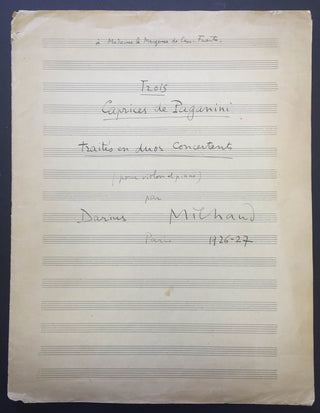 à Madame la Marquise de Casa Fuerte.
Trois
Caprices de Paganini
traités en duos concertants
(pour violon et piano)
par
Darius Milhaud
Paris 1926-27